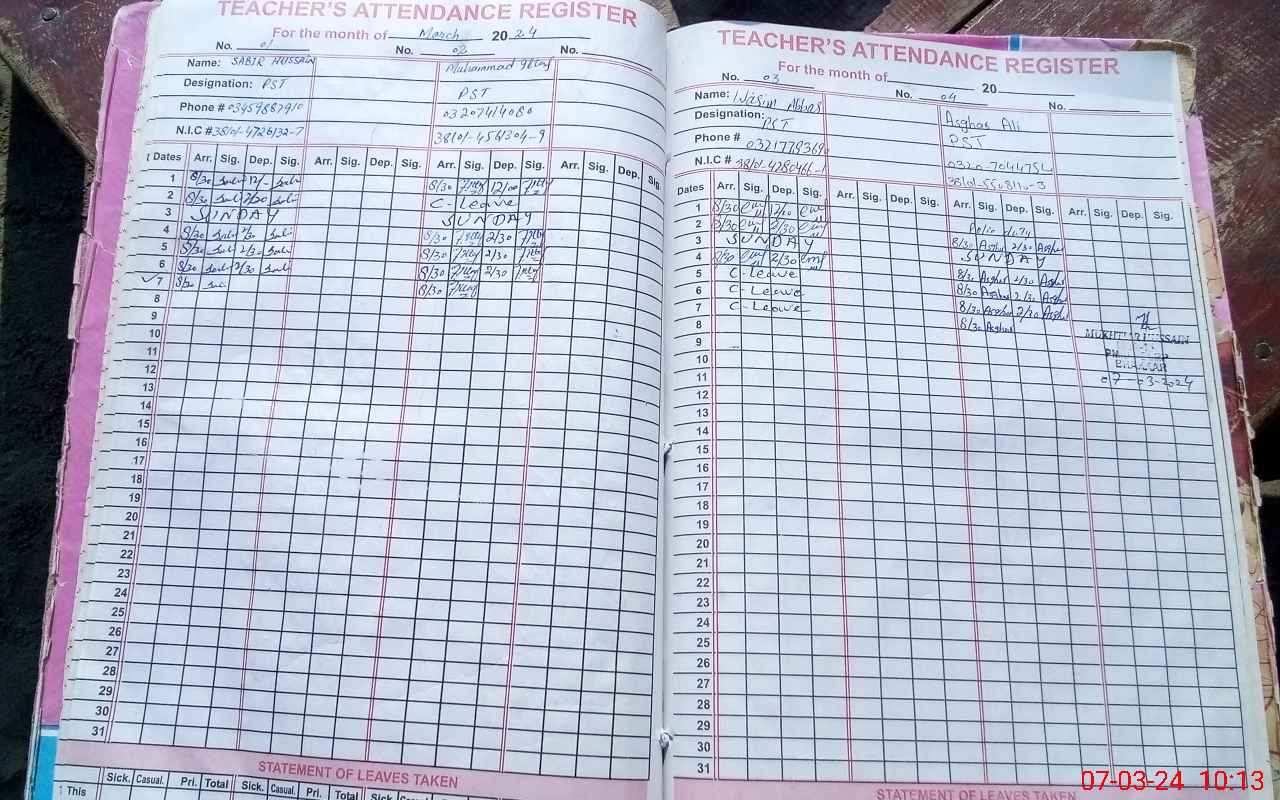 TEACHER'S ATTENDANCE REGISTER
For the month of March 2024
No. 01 No. 02 No.
Name: SABIR HUSSAIN Muhammad
Designation: PST PST
Phone # 03459887910 03207414080
N.I.C # 38101-4726132-7 38101-4561304-9
Dates Arr. Sig. Dep. Sig. Arr. Sig. Dep. Sig. Arr. Sig. Dep. Sig. Arr. Sig. Dep. Sig.
1 8/30 12/- 8/30 12/00
2 8/30 2/30 C-Leave
3 SUNDAY SUNDAY
4 8/30 2/30 8/30 2/30
5 8/30 2/30 8/30 2/30
6 8/30 2/30 8/30 2/30
7 8/30 8/30
8
9
10
11
12
13
14
15
16
17
18
19
20
21
22
23
24
25
26
27
28
29
30
31
STATEMENT OF LEAVES TAKEN
Sick. Casual. Pri. Total Sick. Casual. Pri. Total Sick.
This
TEACHER'S ATTENDANCE REGISTER
For the month of 20
No. 03 No. 04 No.
Name: Wasim Abbas Asghar Ali
Designation: PST PST
Phone # 0321779369 0320-7044754
N.I.C # 38101-5508110-3
Dates Arr. Sig. Dep. Sig. Arr. Sig. Dep. Sig. Arr. Sig. Dep. Sig. Arr. Sig. Dep. Sig.
1 8/30 12/00 Polio duty
2 8/30 2/30 8/30 Asghar 2/30 Asghar
3 SUNDAY SUNDAY
4 2/30 8/30 Asghar 2/30 Asghar
5 C-Leave 8/30 Asghar 2/30 Asghar
6 C-Leave 8/30 Asghar 2/30 Asghar
7 C-Leave 8/30 Asghar
8
9
10
11
12
13
14
15
16
17
18
19
20
21
22
23
24
25
26
27
28
29
30
31
MUKHTIAR HUSSAIN
BHAKKAR
07-03-2024
STATEMENT OF LEAVES TAKEN
07-03-24 10:13